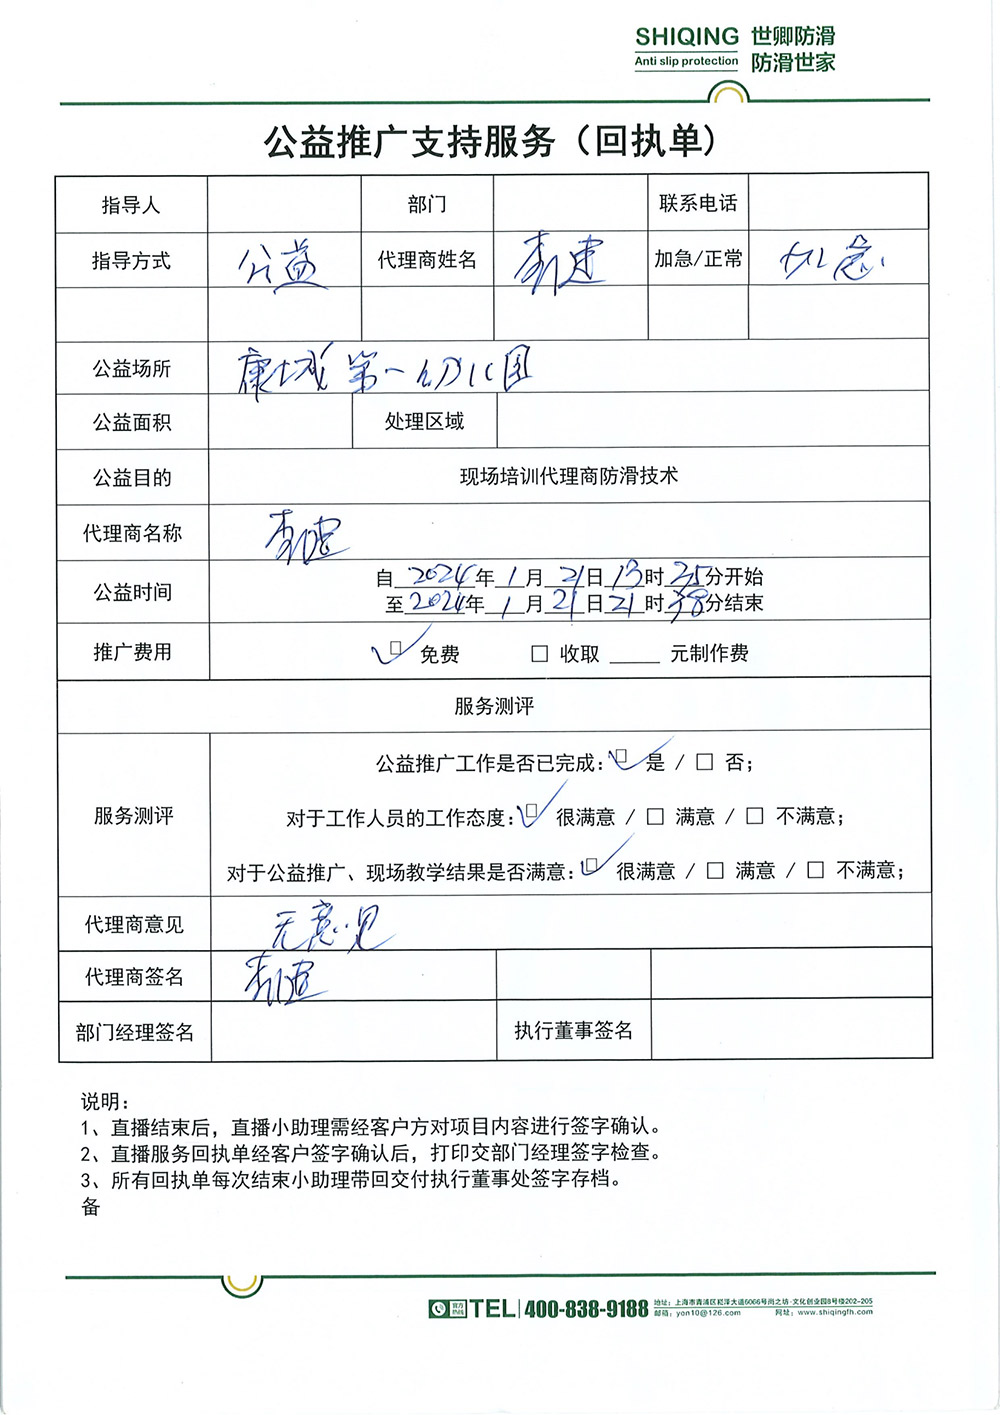 SHIQING 世卿防滑
Anti slip protection 防滑世家
公益推广支持服务（回执单）
指导人 部门 联系电话
指导方式 公益 代理商姓名 李建 加急/正常 加急
公益场所 康城第一幼儿园
公益面积 处理区域
公益目的 现场培训代理商防滑技术
代理商名称 李建
公益时间 自 2024 年 1 月 21 日 13 时 35 分开始
至 2024 年 1 月 21 日 21 时 38 分结束
推广费用 ☑ 免费 □ 收取 _____ 元制作费
服务测评
公益推广工作是否已完成：☑ 是 / □ 否；
服务测评 对于工作人员的工作态度：☑ 很满意 / □ 满意 / □ 不满意；
对于公益推广、现场教学结果是否满意：☑ 很满意 / □ 满意 / □ 不满意；
代理商意见 无意见
代理商签名 李建
部门经理签名 执行董事签名
说明：
1、直播结束后，直播小助理需经客户方对项目内容进行签字确认。
2、直播服务回执单经客户签字确认后，打印交部门经理签字检查。
3、所有回执单每次结束小助理带回交付执行董事处签字存档。
备
官方热线 TEL 400-838-9188 地址：上海市青浦区崧泽大道6066号尚之坊·文化创业园8号楼202-205
邮箱：yon10@126.com 网址：www.shiqingfh.com